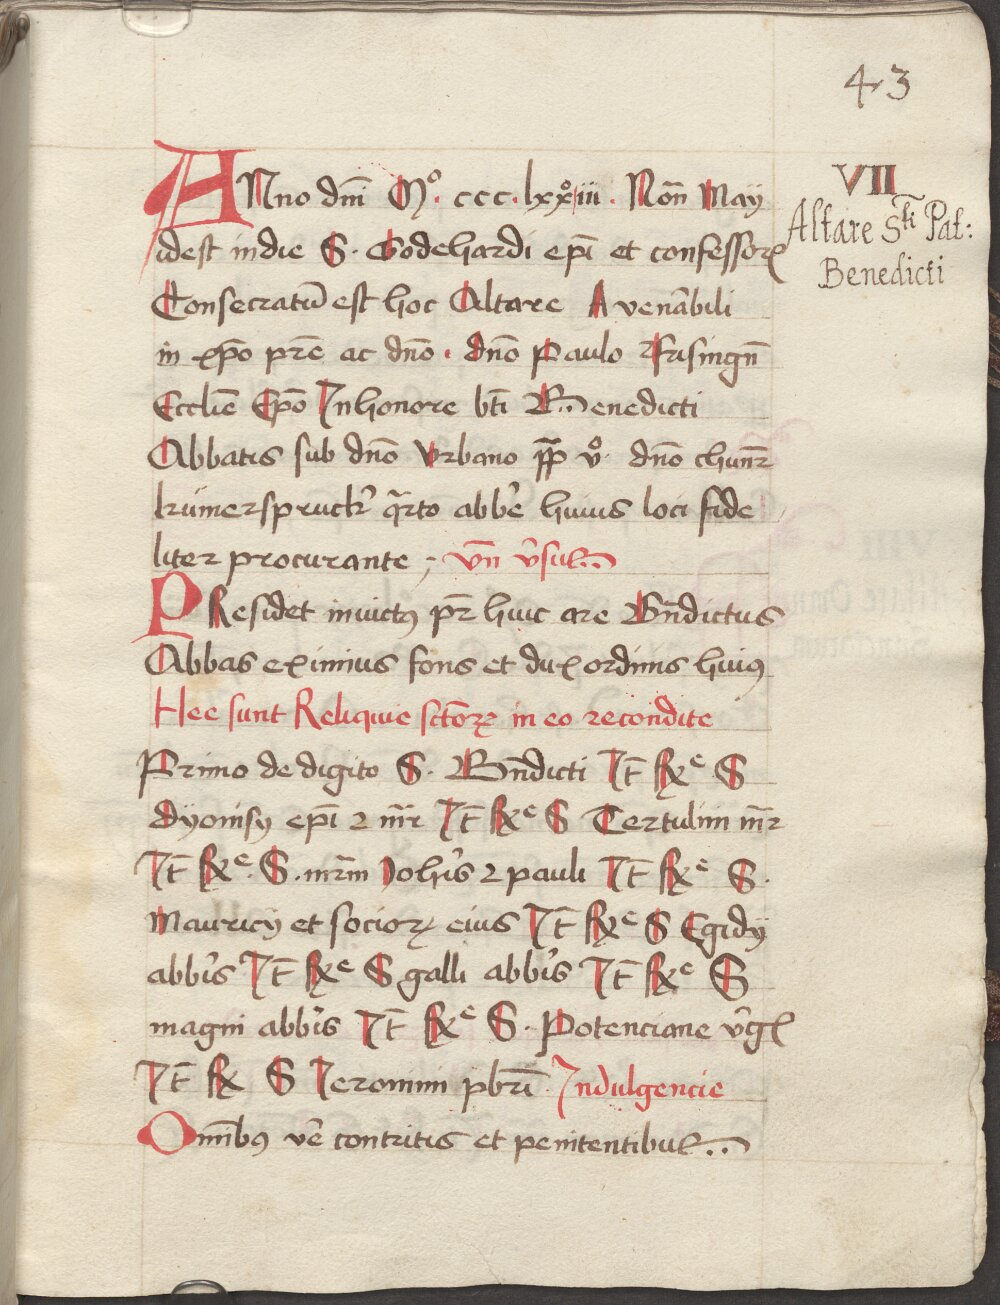 43
ANno dm̄i Mº. ccc. lxxºiii. Non̄ May
idest in die S. Godehardi ep̄i et confessorꝭ
Consecratū est hoc Altare A ven̄abili
in xp̄o pr̄e ac dn̄o. dn̄o Paulo Frisingn̄
Eccl̄ie Ep̄o Inhonore bt̄i Benedicti
Abbatis sub dn̄o Vrbano pp̄ vº. dn̄o chunr̄
kümerspruck’ q̄rto abb’e huius loci fide
liter procurante ; vn̄ v̄sul
PResidet inuictꝰ pr̄ huic are Bn̄dictus
Abbas eximius fons et dux ordinis huiꝰ
Hee sunt Reliquie sctōrꝝ in eo recondite
Primo de digito S. Bn̄dicti It̄ Rxᵉ S
dyonisy ep̄i ⁊ m̄r It̄ Rxᵉ S Tertulini m̄r
It̄ Rxᵉ. S. mr̄m Joh’is ⁊ pauli It̄ Rxᵉ S.
Mauricij et sociorꝝ eius It̄ Rxᵉ S Egidÿ
abb’is It̄ Rxᵉ S galli abb’is It̄ Rxᵉ S
magni abb’is It̄ Rxᵉ S. Potenciane v’gꝭ
It̄ Rx S Jeronimi pbr̄i Indulgencie
Om̄ibꝰ ve᷑ contritis et penitentibus
VII
Altare Sti Pat:
Benedicti